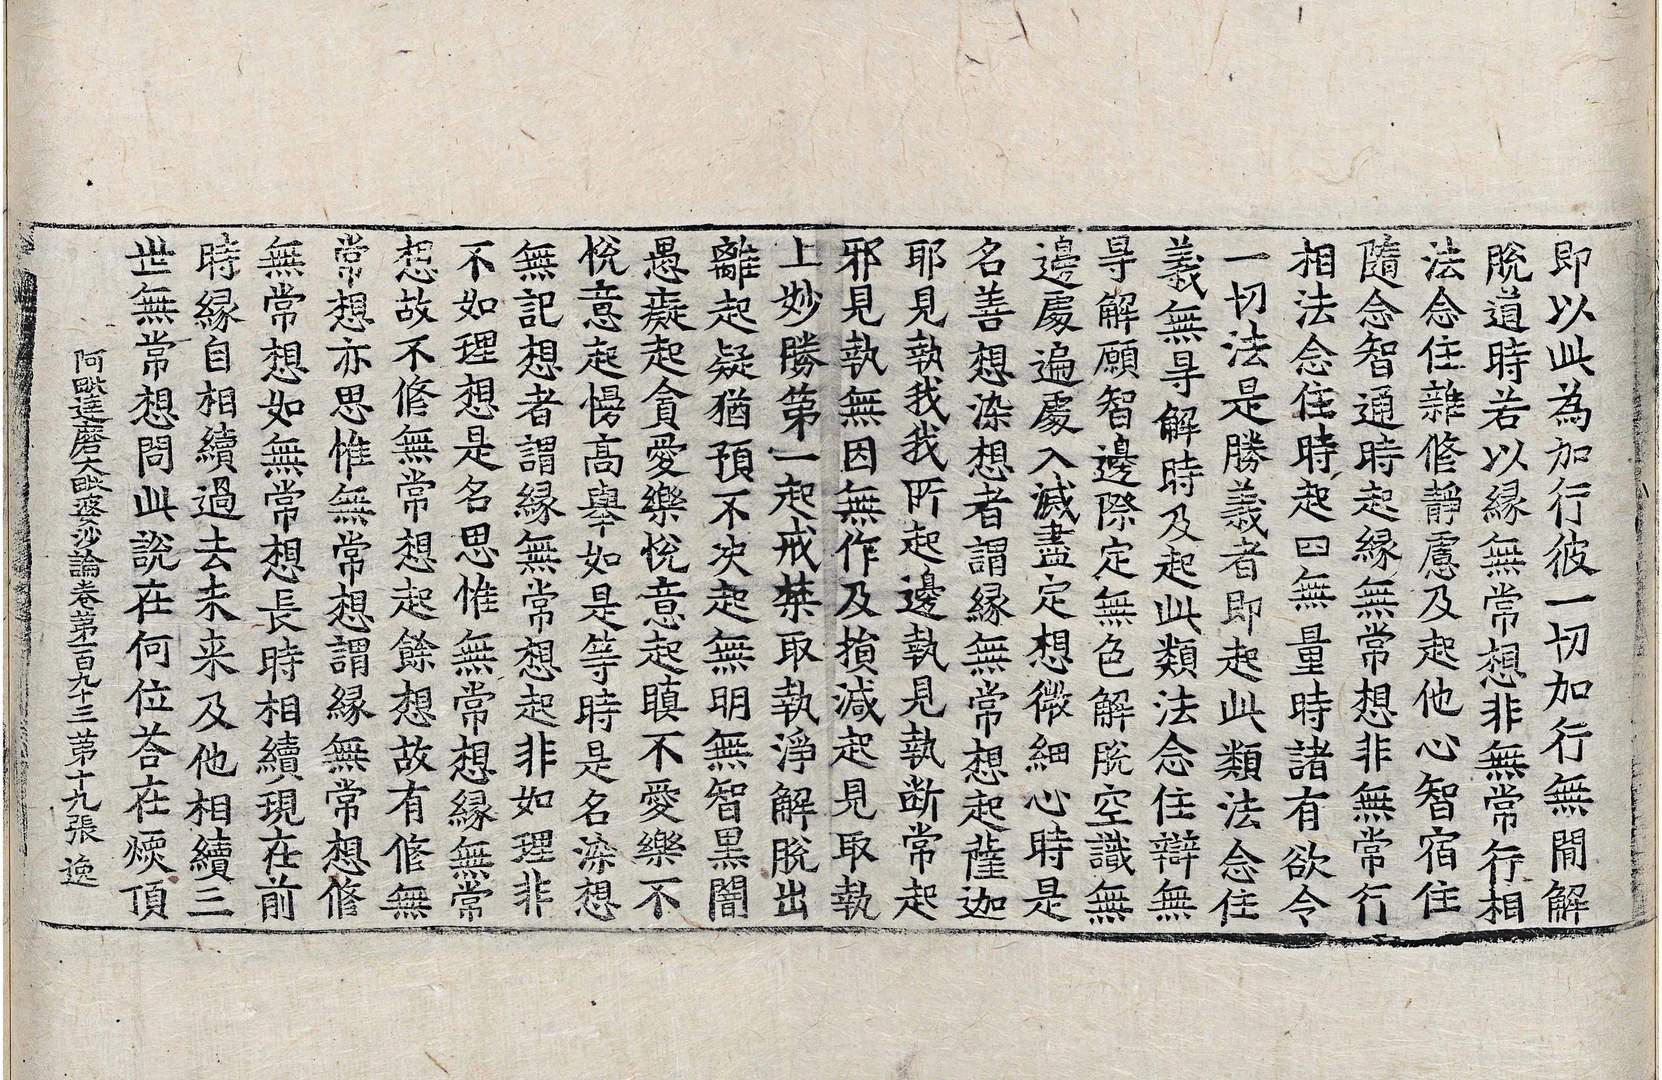 即以此為加行彼一切加行無閒解
脫道時若以緣無常想非無常行相
法念住雜修靜慮及起他心智宿住
隨念智通時起緣無常想非無常行
相法念住時起四無量時諸有欲令
一切法是勝義者即起此類法念住
義無㝵解時及起此類法念住辯無
㝵解願智邊際定無色解脫空識無
邊處遍處入滅盡定想微細心時是
名善想染想者謂緣無常想起薩迦
耶見執我我所起邊執見執断常起
邪見執無因無作及損減起見取執
上妙勝第一起戒禁取執淨解脫出
離起疑猶預不决起無明無智黑闇
愚癡起貪愛樂悅意起瞋不愛樂不
悅意起慢高舉如是等時是名染想
無記想者謂緣無常想起非如理非
不如理想是名思惟無常想緣無常
想故不修無常想起餘想故有修無
常想亦思惟無常想謂緣無常想修
無常想如無常想長時相續現在前
時緣自相續過去未来及他相續三
世無常想問此說在何位荅在煗頂
阿毗達磨大毗婆沙論卷第一百九十三 第十九張 逸